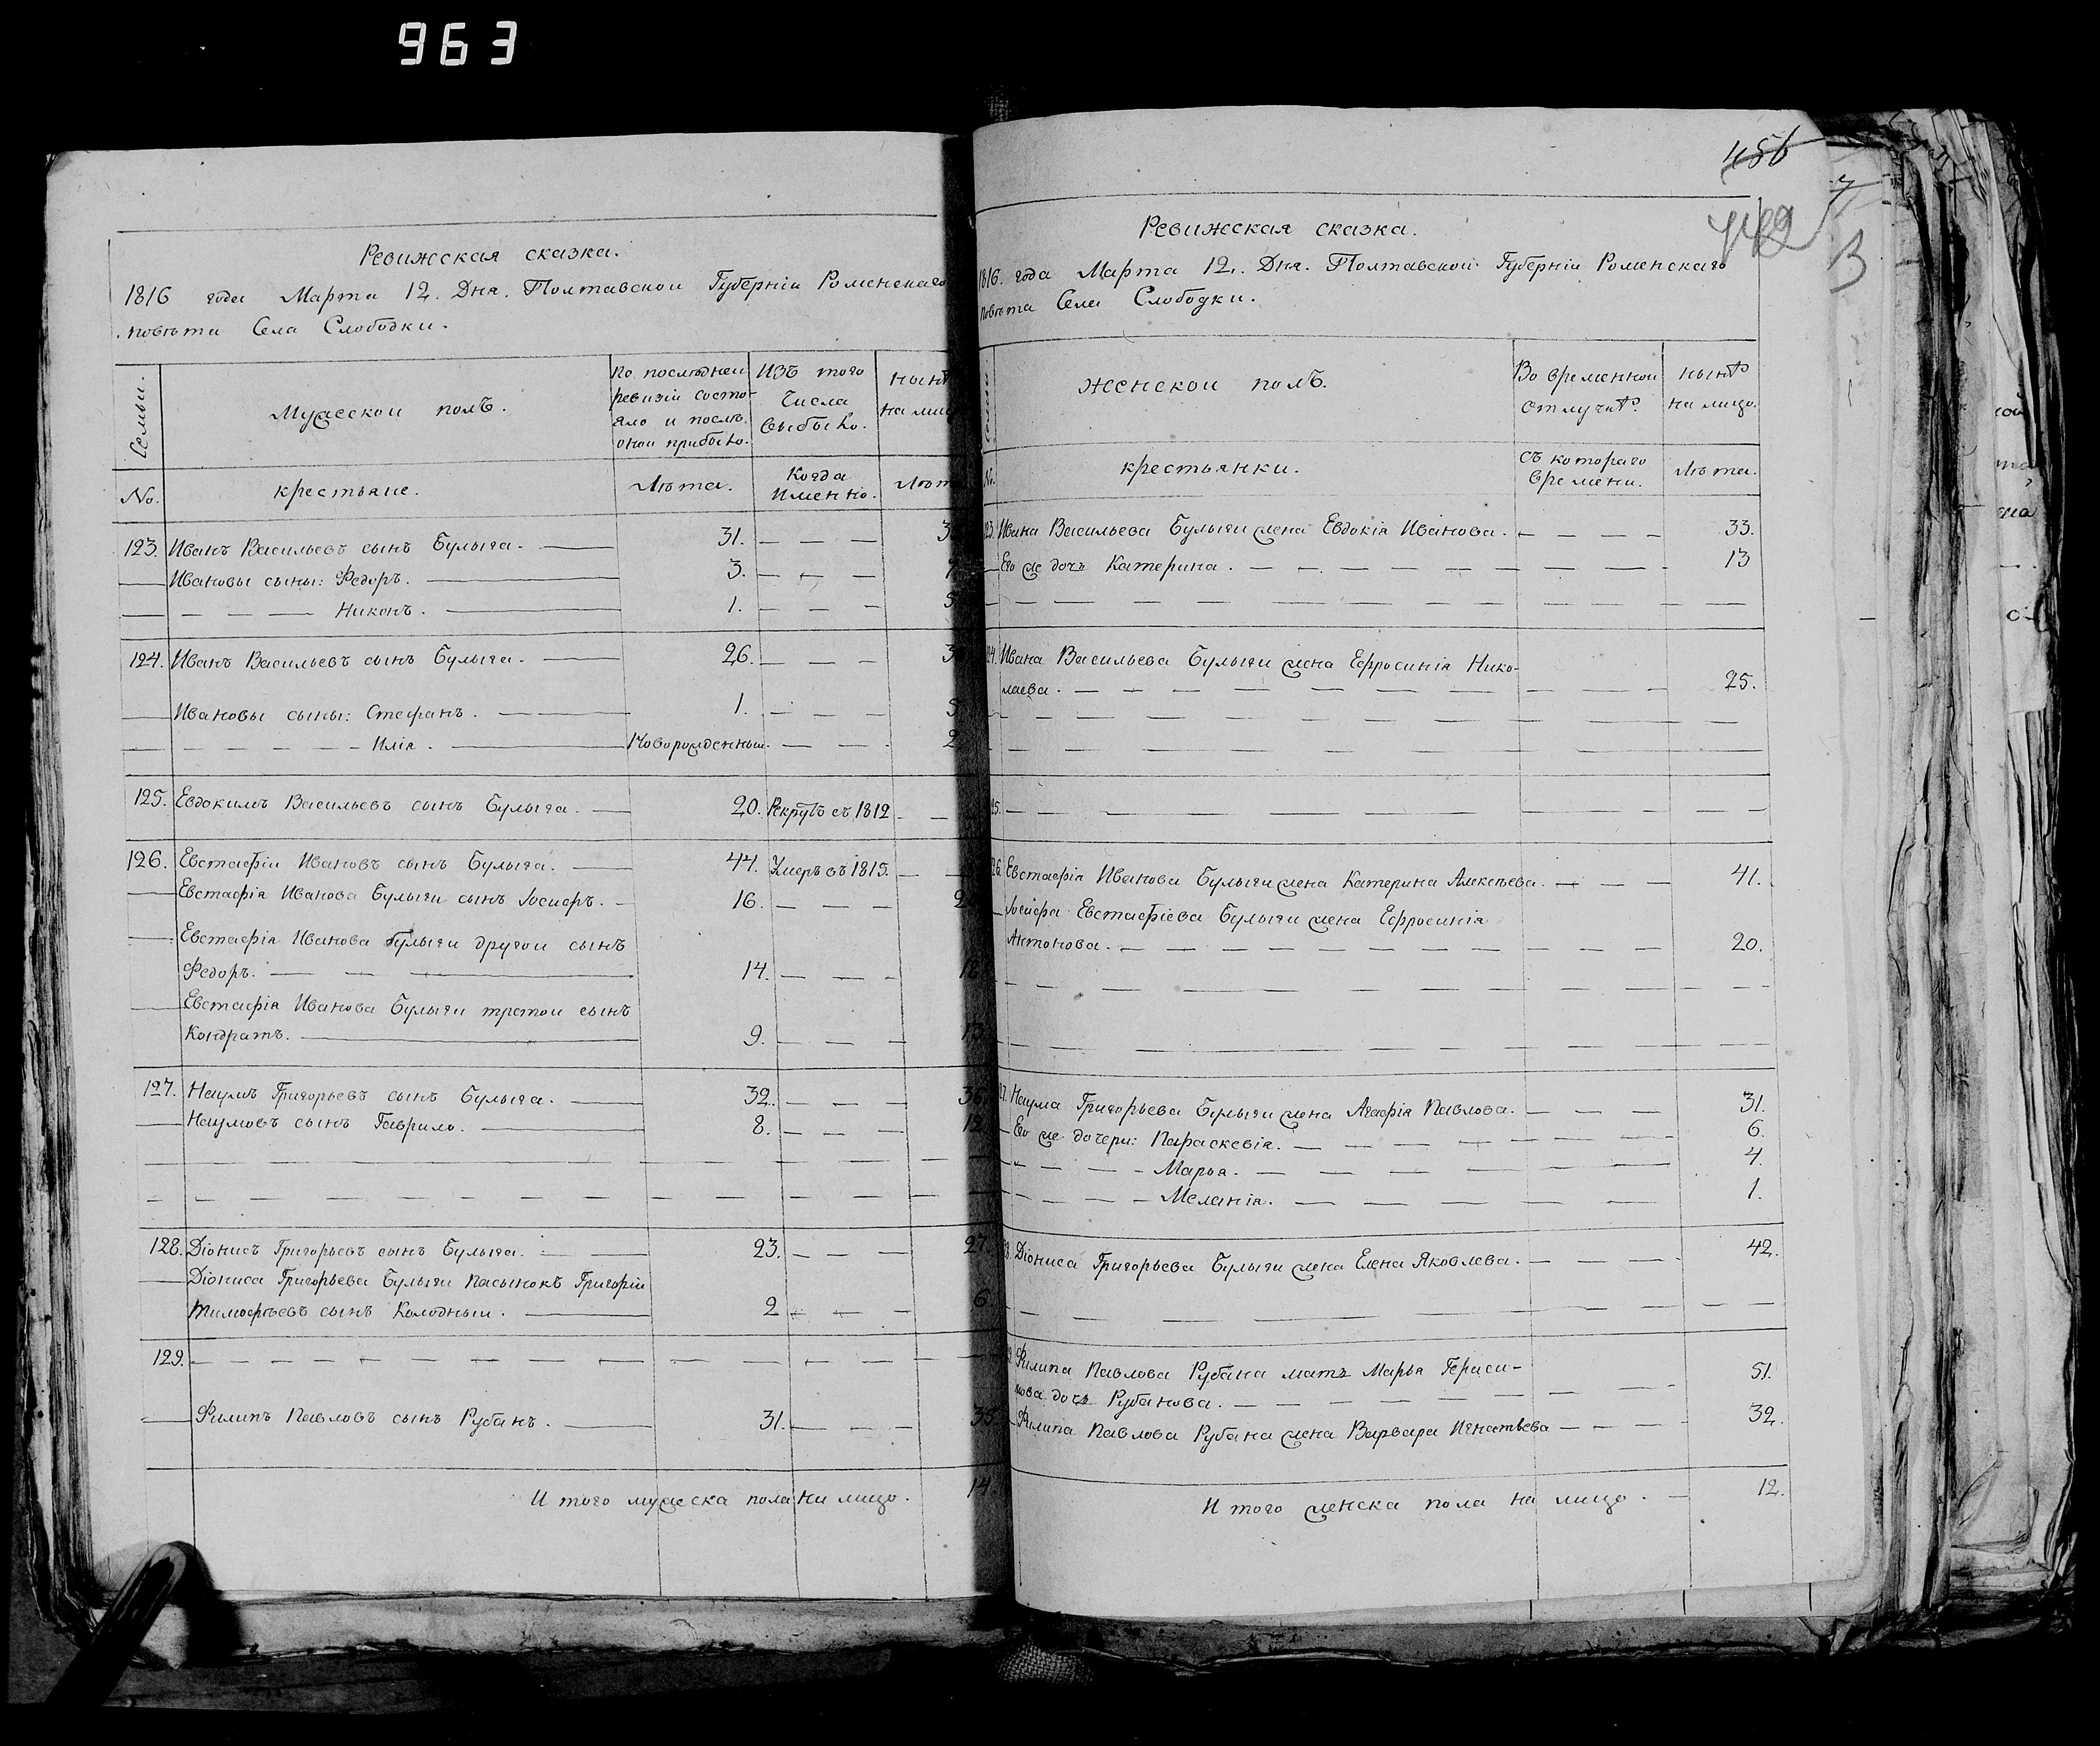 963
Ревижская сказка.
1816 года Марта 12. Дня. Полтавской Губерніи Роменскаго
повѣта Села Слободки.
Семьи.
Мужескои полъ.
По последнеи
ревизіи состо-
яло и послѣ
онои прибыло.
Изъ того
Числа
выбыло.
нынѣ
на лицо
No.
крестьяне.
Лѣта.
Когда
Именно.
Лѣт
123. Иванъ Васильевъ сынъ Булыга. 31.
Ивановы сыны: Федоръ. 3. 7
Никонъ. 1. 5
124. Иванъ Васильевъ сынъ Булыга. 26. 30
Ивановы сыны: Стефанъ. 1. 5
Илія. Новорожденныи. 2
125. Евдокимъ Васильевъ сынъ Булыга. 20. Рекрутъ съ 1812
126. Евстафіи Ивановъ сынъ Булыга. 44. Умеръ въ 1815.
Евстафія Иванова Булыги сынъ Іосифъ. 16.
Евстафія Иванова Булыги другои сынъ
Федоръ. 14. 18
Евстафія Иванова Булыги третои сынъ
Кондратъ. 9. 13
127. Наумъ Григорьевъ сынъ Булыга. 32. 36
Наумовъ сынъ Гаврило. 8. 12
128. Діонисъ Григорьевъ сынъ Булыга. 23. 27.
Діониса Григорьева Булыги пасынокъ Григоріи
Тимофѣевъ сынъ Колодныи. 2 6.
129.
Филипъ Павловъ сынъ Рубанъ. 31. 35
И того мужеска пола на лицо. 14
456
Ревижская сказка.
1816. года Марта 12. Дня. Полтавскои Губерніи Роменскаго
повѣта Села Слободки.
женскои полъ.
Во временнои
отлучкѣ.
нынѣ
на лицо.
No.
крестьянки.
съ котораго
времени.
Лѣта.
Ивана Васильева Булыги жена Евдокія Иванова. 33.
Его же дочь Катерина. 13
Ивана Васильева Булыги жена Ефросинія Нико-
лаева. 25.
Евстафія Иванова Булыги жена Катерина Алексѣева. 41.
Іосифа Евстафіева Булыги жена Ефросинія
Антонова. 20.
Наума Григорьева Булыги жена Агафія Павлова. 31.
Его же дочери: Параскевія. 6.
Марья. 4.
Меланія. 1.
Діониса Григорьева Булыги жена Елена Яковлева. 42.
Филипа Павлова Рубана мать Марья Гераси-
мова дочь Рубанова. 51.
Филипа Павлова Рубана жена Варвара Игнатьева 32.
И того женска пола на лицо. 12.